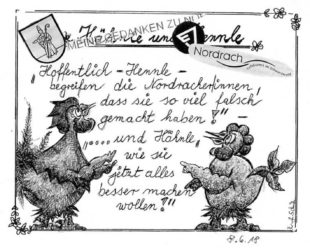 MEINE GEDANKEN ZU NO
Hähnle und Hennle
Nordrach
"Hoffentlich - Hennle -
begreifen die Nordracher/innen,
dass sie so viel falsch
gemacht haben!" -
"..... und Hähnle,
wie sie
jetzt alles
besser machen
wollen!"
8.6.18